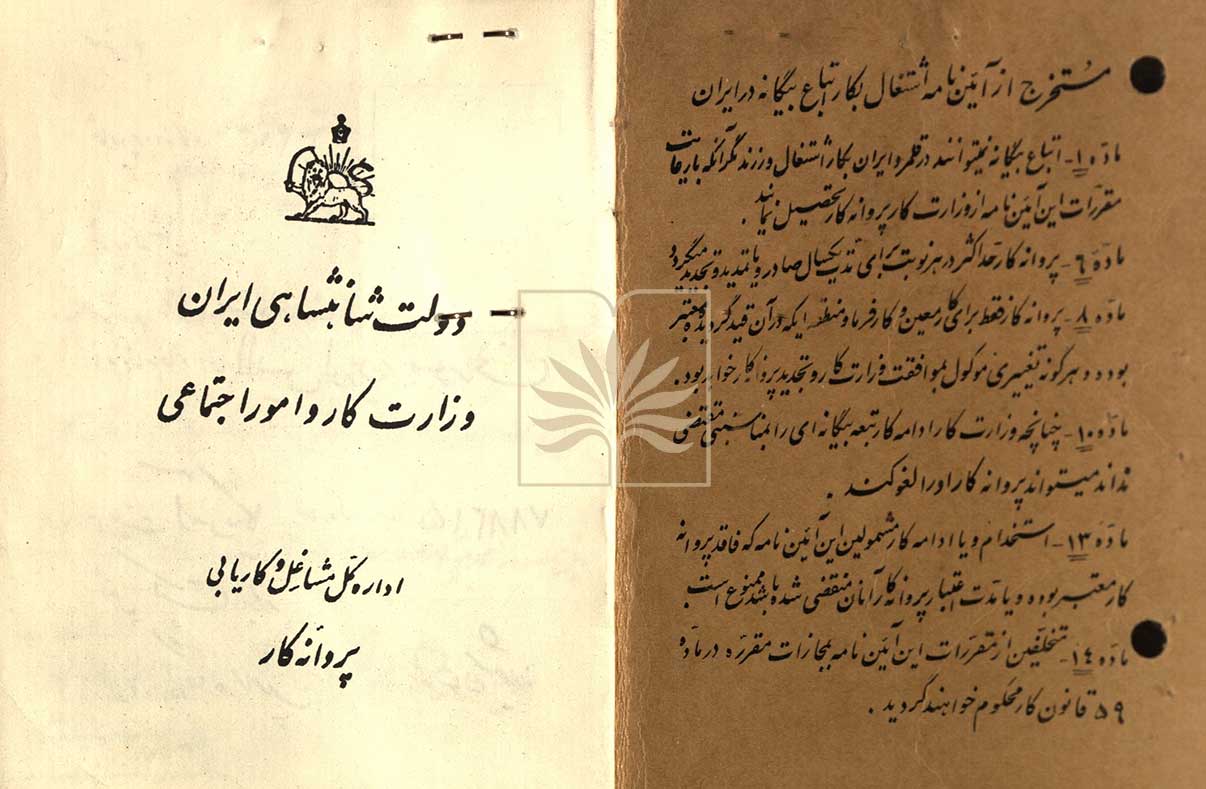 مستخرج از آئین نامه اشتغال بکار اتباع بیگانه در ایران
ماده ۱- اتباع بیگانه نمیتوانند در قلمرو ایران بکار اشتغال ورزند مگر آنکه با رعایت
مقررات این آئین نامه از وزارت کار پروانه کار تحصیل نمایند .
ماده ۶- پروانه کار حداکثر در هر نوبت برای مدت یکسال صادر و یا تمدید و تجدید میگردد
ماده ۸- پروانه کار فقط برای کار معین و کارفرما و منطقه ایکه در آن قید گردیده معتبر
بوده و هرگونه تغییری موکول بموافقت وزارت کار و تجدید پروانه کار خواهد بود .
ماده ۱۰- چنانچه وزارت کار ادامه کار تبعه بیگانه ای را بمناسبتی مقتضی
نداند میتواند پروانه کار او را لغو کند .
ماده ۱۳- استخدام و یا ادامه کار مشمولین این آئین نامه که فاقد پروانه
کار معتبر بوده و یا مدت اعتبار پروانه کار آنان منقضی شده باشد ممنوع است
ماده ۱۴- متخلفین از مقررات این آئین نامه بمجازات مقرره در ماده
۵۹ قانون کار محکوم خواهند گردید .
دولت شاهنشاهی ایران
وزارت کار و امور اجتماعی
اداره کل مشاغل و کاریابی
پروانه کار